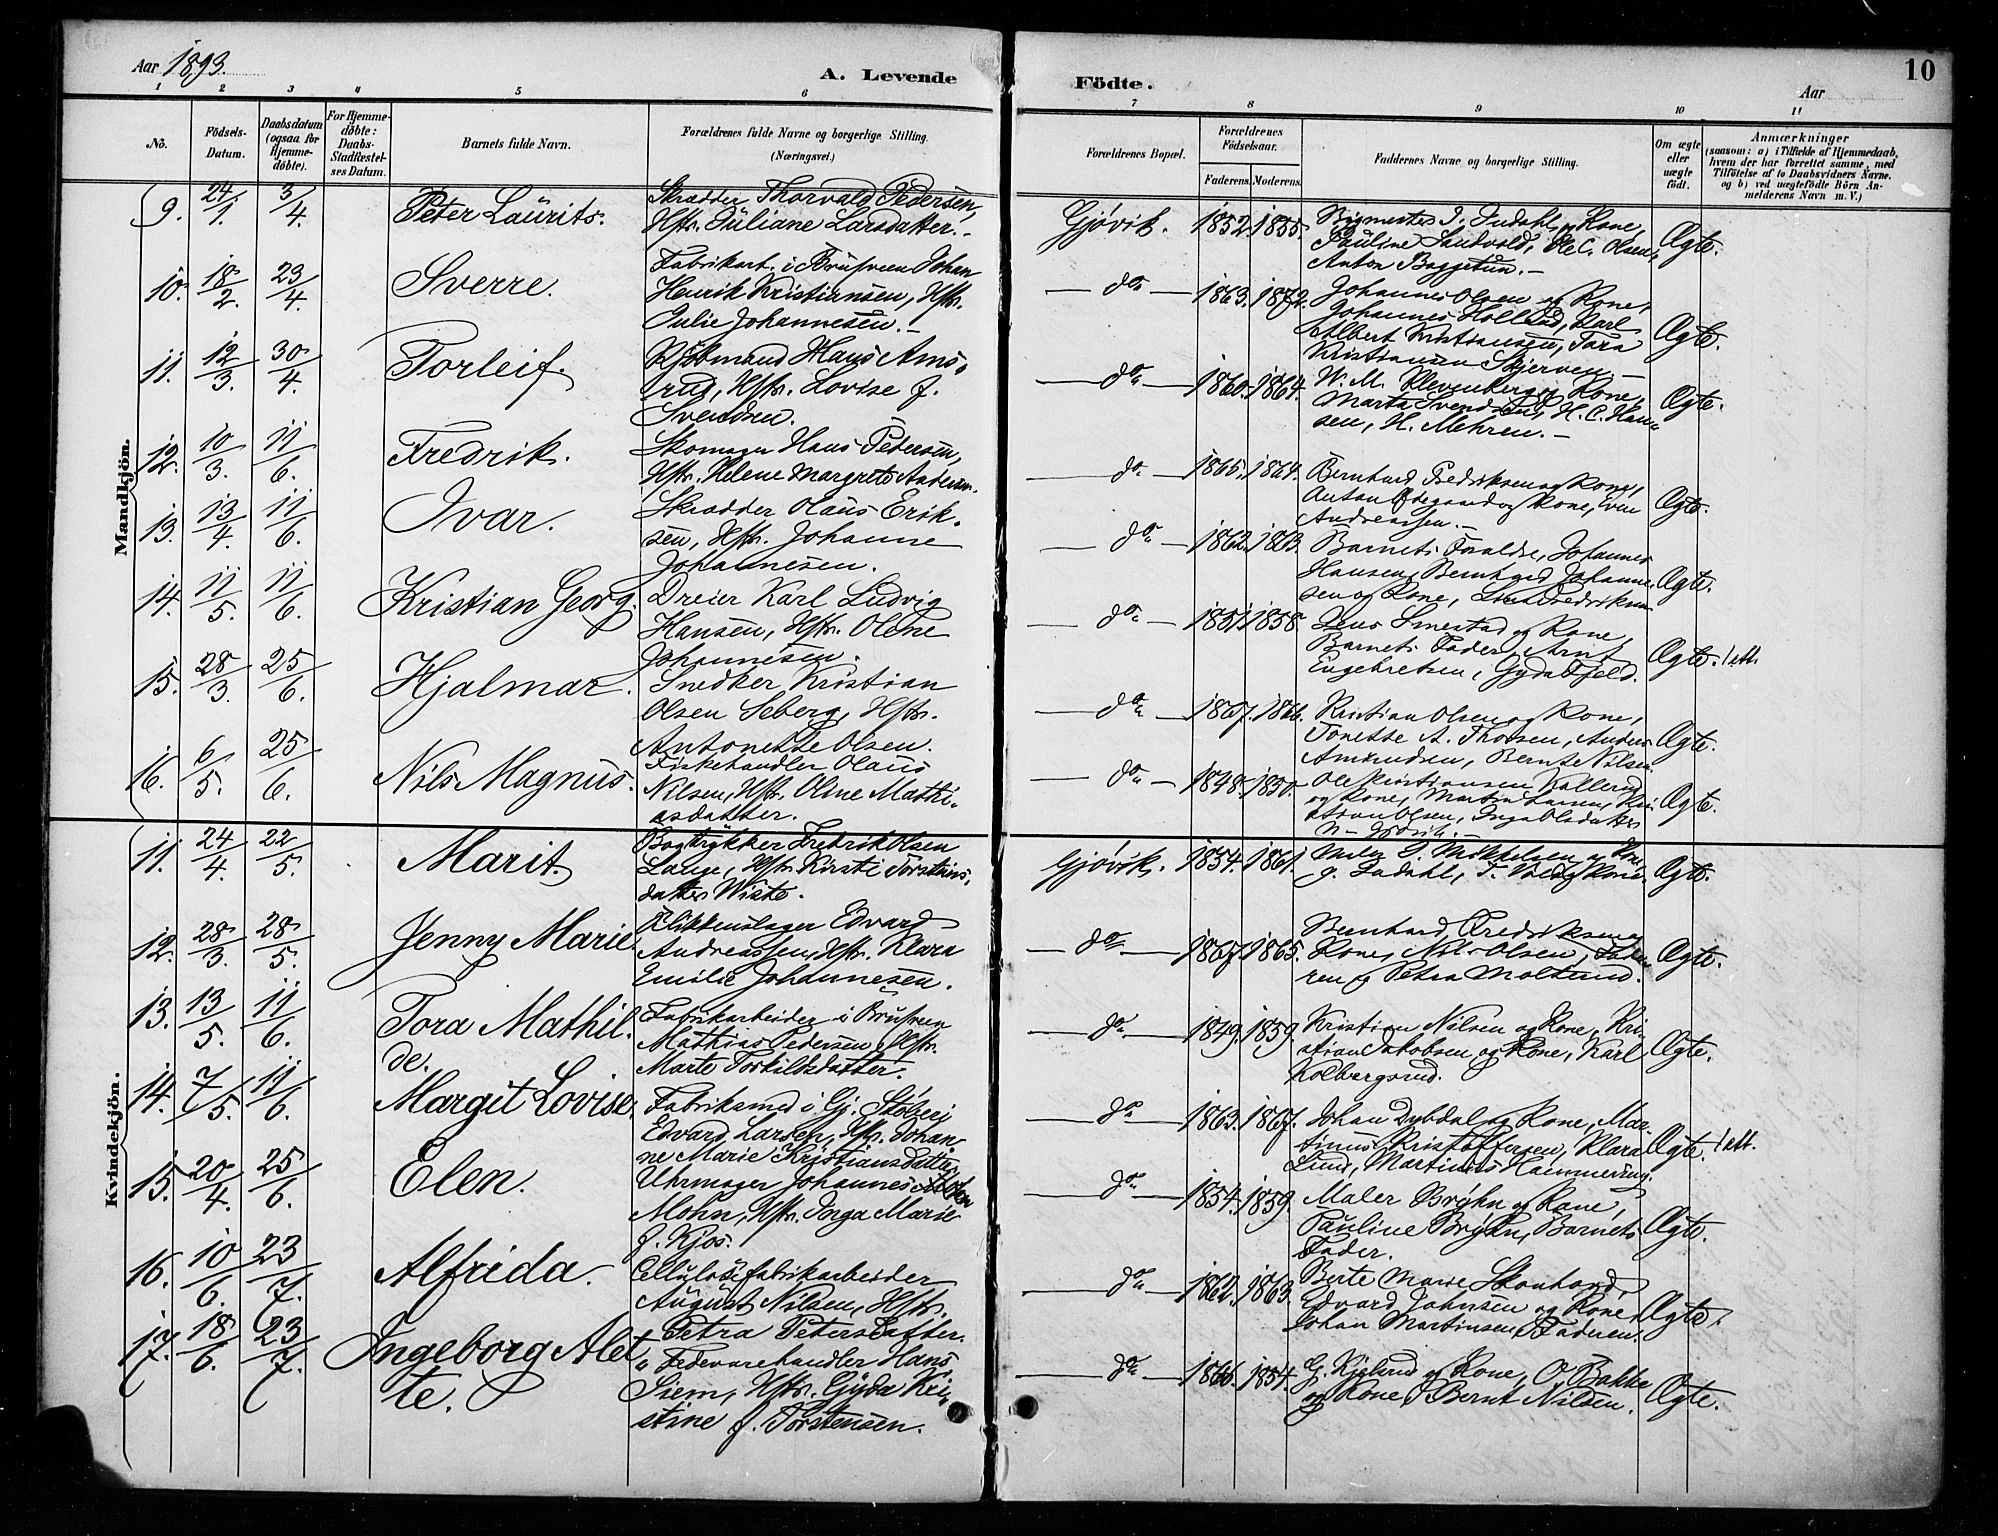 Aar 1893.
A. Levende Födte.
10
Aar
1 2 3 4 5 6 7 8 9 10 11
No.
Födsels-Datum.
Daabsdatum (ogsaa for Hjemme-döbte).
For Hjemme-döbte: Daabs-Stadfæstel-ses Datum.
Barnets fulde Navn.
Forældrenes fulde Navne og borgerlige Stilling.
(Næringsvei.)
Forældrenes Bopæl.
Forældrenes Födselsaar.
Faderens. Moderens.
Faddernes Navne og borgerlige Stilling.
Om ægte eller uægte födt.
Anmærkninger
(saasom: a) i Tilfælde af Hjemmedaab, hvem der har forrettet samme, med Tilföielse af to Daabsvidners Navne. og b) ved uægtefödte Börn An-melderens Navn m. V.)
Mandkjön.
9. 24/1. 3/4. Peter Laurits. Skrædder Thorvald Pedersen,
Hstr. Juliane Larsdatter.-
Gjøvik. 1852. 1855. og Kone,
Pauline Sandvold, Ole C. Olsen,
Anton Baggetun.- Ægte.
10. 18/2. 23/4. Sverre. Fabrikarb. i Brusveen Johan
Henrik Kristiansen, Hstr.
Julie Johannesen.-
— do — 1863. 1872. Johannes Olsen og Kone,
Johannes Karl
Albert Kristiansen, Tora
Kristiansen Skjerven.- Ægte.
11. 12/3. 30/4. Torleif. Kjøbmand Hans Ams-
rud, Hstr. Lovise f.
Svendsen.
— do — 1860. 1864. W. M. Klevenberg og Kone,
Marta Svendsen, H. C. Han-
sen, H. Mehren.- Ægte.
12. 10/3. 11/6. Fredrik. Skomager Hans Pedersen,
Hstr. Helene Margrete Andersen.
— do — 1865. 1864. Bernhard Fredriksen og Kone,
Anton Ødegaard og Kone, Even
Andreassen.- Ægte.
13. 13/4. 11/6. Ivar. Skrædder Olaus Erik-
sen, Hstr. Johanne
Johannesen.
— do — 1862. 1863. Barnets Forældre, Johannes
Hansen, Bernhard Johanne-
sen og Kone, Fredriksen. Ægte.
14. 11/5. 11/6. Kristian Georg. Dreier Karl Ludvig
Hansen, Hstr. Olene
Johannesen.
— do — 1851. 1858. Jens Smestad og Kone,
Barnets Fader, Arnt
Engebretsen, Gyda Fjeld. Ægte. 1 att.
15. 28/3. 25/6. Hjalmar. Snedker Kristian
Olsen Seberg, Hstr.
Antonette Olsen.
— do — 1867. 1866. Kristian Olsen og Kone,
Tonette A. Thorsen, Anders
Amundsen, Bernte Nilsen. Ægte.
16. 6/5. 25/6. Nils Magnus. Fiskehandler Olaus
Nilsen, Hstr. Oline Mathi-
asdatter.
— do — 1848. 1850. Ole Kristiansen Kallerud
og Kone, Martin Larsen, Kri-
stian Olsen, Inga Olsdatter
Ægte.
Kvindekjön.
11. 24/4. 22/5. Marit. Bogtrykker Fredrik Olsen
Lange, Hstr. Kirsti Torsteins-
datter Wiste.
Gjøvik. 1854. 1861. Mikkelsen og Kone,
g. Dadahl, T. Kone. Ægte.
12. 28/3. 28/5. Jenny Marie. Blikkenslager Edvard
Andreassen, Hstr. Klara
Emilie Johannesen.
— do — 1867. 1865. Bernhard Fredriksen og
Kone, Nils Olsen, Fade-
ren og Petra Moltzaud. Ægte.
13. 13/5. 11/6. Tora Mathil-
de. Fabrikarbeider i Brusveen
Mathias Pedersen, Hstr.
Marte Torkildsdatter.
— do — 1849. 1859. Kristian Nilsen og Kone, Kri-
stian Jakobsen og Kone, Karl
Kolbergsrud. Ægte.
14. 7/5. 11/6. Margit Lovise. Fabriksmed i Gj. Støberi
Edvard Larsen, Hstr. Johan-
ne Marie Kristiansdatter.
— do — 1863. 1867. Johan Dybdal og Kone, Mar-
tinus Kristoffersen, Klara
Lund, Martinius Hammering. Ægte. 1 att.
15. 20/4. 25/6. Elen. Uhrmager Johannes
Mohn, Hstr. Inga Marie
f. Kjos.
— do — 1854. 1859. Maler Bryhn og Kone,
Pauline Bryhn, Barnets
Fader. Ægte.
16. 10/6. 23/7. Alfrida. Cellulosefabrikarbeider
August Nilsen, Hstr.
Petra Petersdatter.
— do — 1862. 1863. Berte Marie Skonhord,
Edvard Johnsen og Kone,
Johan Martinsen, Faderen. Ægte.
17. 18/6. 23/7. Ingeborg Alet-
te. Fedevarehandler Hans
Siem, Hstr. Gyda Kri-
stine f. Torstensen.
— do — 1866. 1854. G. Kjelsrud og Kone, O. Bakke
og Kone, Bernt Nilsen. Ægte.